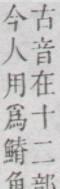 古音在十二部
今人用爲鯖魚